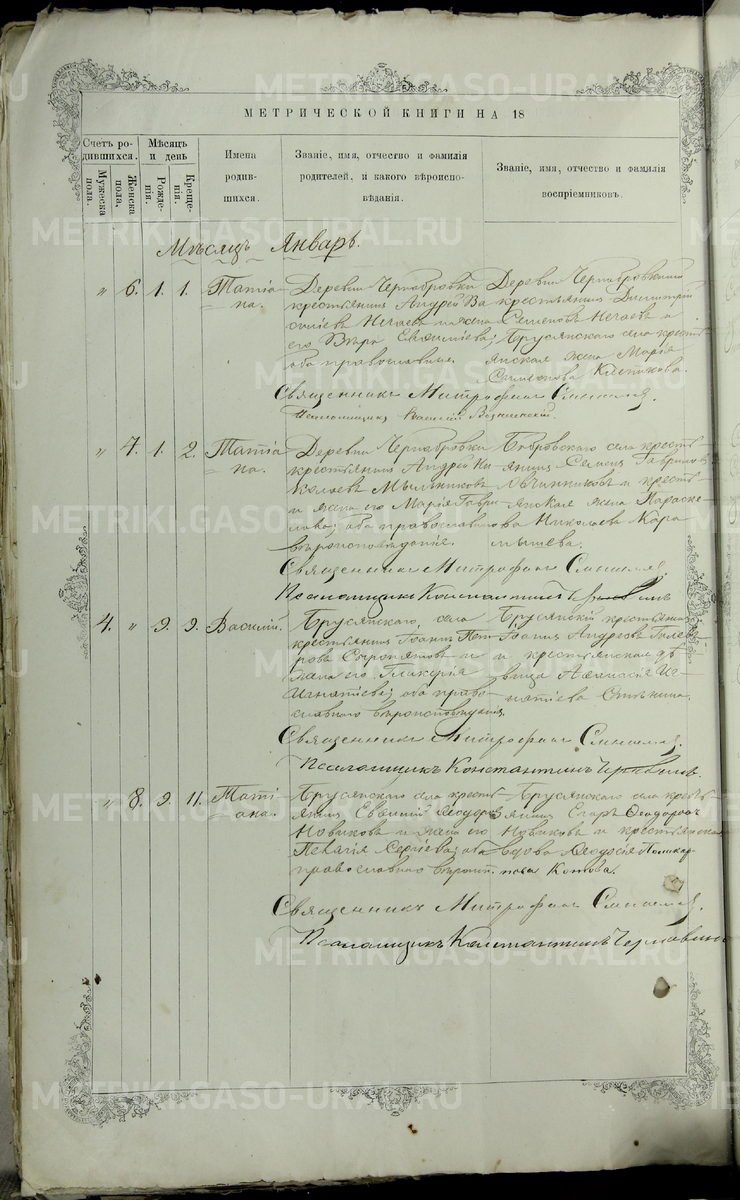 МЕТРИЧЕСКОЙ КНИГИ НА 18
Счетъ родившихся.
Мужеска пола.
Женска пола.
Мѣсяцъ и день
Рожденія.
Крещенія.
Имена родившихся.
Званіе, имя, отчество и фамилія родителей, и какого вѣроисповѣданія.
Званіе, имя, отчество и фамилія воспріемниковъ.
Мѣсяцъ Январь.
" 6. 1. 1. Татіана.
Деревни Чернобровки
крестьянинъ Андрей Ва
силіевъ Нечаевъ и жена
его Вѣра Евфиміева; оба православные
Деревни Чернобровской
крестьянинъ Димитрій
Семеновъ Нечаевъ и
Брусянскаго села крестьянская жена Марія
Симеонова
Священникъ Митрофанъ
Псаломщикъ Василій
" 7. 1. 2. Татіана.
Деревни Чернобровки
крестьянинъ Андрей Ни
колаевъ Мыльниковъ
и жена его Марія Гаврилова; оба православнаго
вѣроисповѣданія.
Бобровскаго села крестьянинъ Гавриловъ
Овчинниковъ и крестьянская жена Параскева Николаева Карамышева.
Священникъ Митрофанъ
Псаломщикъ Константинъ
4. " 9. 9. Василій.
Брусянскаго села
крестьянинъ Іоаннъ Петровъ Сыропятовъ и
жена его Гликерія
Игнатіева; оба православнаго вѣроисповѣданія.
Брусянскій крестьянинъ
Іоаннъ Андреевъ
и крестьянская дѣвица Афанасія Игнатіева
Священникъ Митрофанъ
Псаломщикъ Константинъ
" 8. 9. 11. Татіана.
Брусянскаго села крестьянинъ Евфимій Ѳеодоровъ
Новиковъ и жена его
Пелагія Сергіева; оба
православнаго вѣроисп.
Брусянскаго села крестьянинъ Егоръ Ѳеодоровъ
Новиковъ и крестьянская
вдова Ѳеодосія Поликарпова Котова.
Священникъ Митрофанъ
Псаломщикъ Константинъ Чернавинъ
METRIKI.GASO-URAL.RU